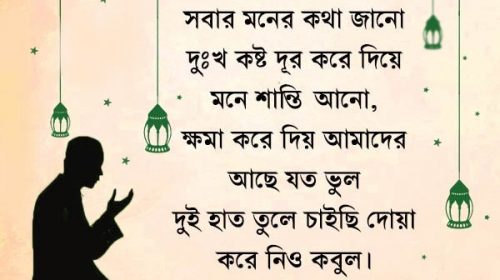 সবার মনের কথা জানো
দুঃখ কষ্ট দূর করে দিয়ে
মনে শান্তি আনো,
ক্ষমা করে দিয় আমাদের
আছে যত ভুল
দুই হাত তুলে চাইছি দোয়া
করে নিও কবুল।